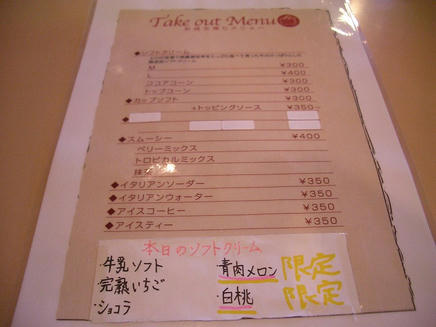 Take out Menu
◆ソフトクリーム
M ¥300
L ¥400
ココアコーン ¥300
トップコーン ¥300
◆カップソフト ¥300
+トッピングソース ¥350~
◆スムージー ¥400
ベリーミックス
トロピカルミックス
抹茶
◆イタリアンソーダー ¥350
◆イタリアンウォーター ¥350
◆アイスコーヒー ¥350
◆アイスティー ¥350
本日のソフトクリーム
・牛乳ソフト
・完熟いちご
・ショコラ
・青肉メロン 限定
・白桃 限定